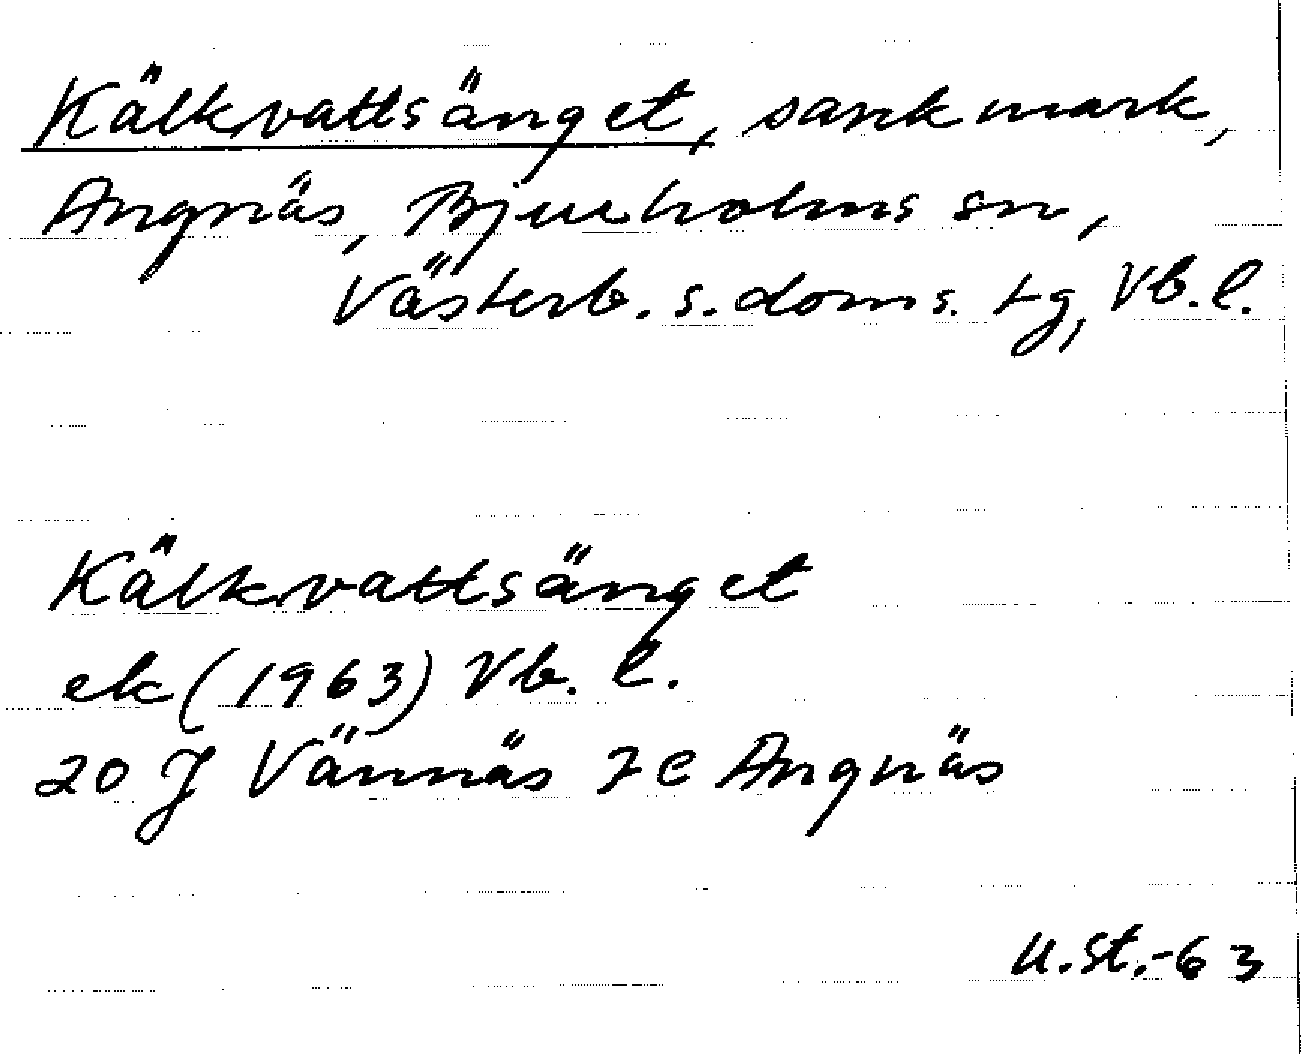 Kälkvattsänget, sankmark,
Angnäs, Bjurholms sn,
Västerb. s. doms. tg, Vb. l.
Kälkvattsänget
ek (1963) Vb. l.
20 J Vännäs 7e Angnäs
U.St.-63